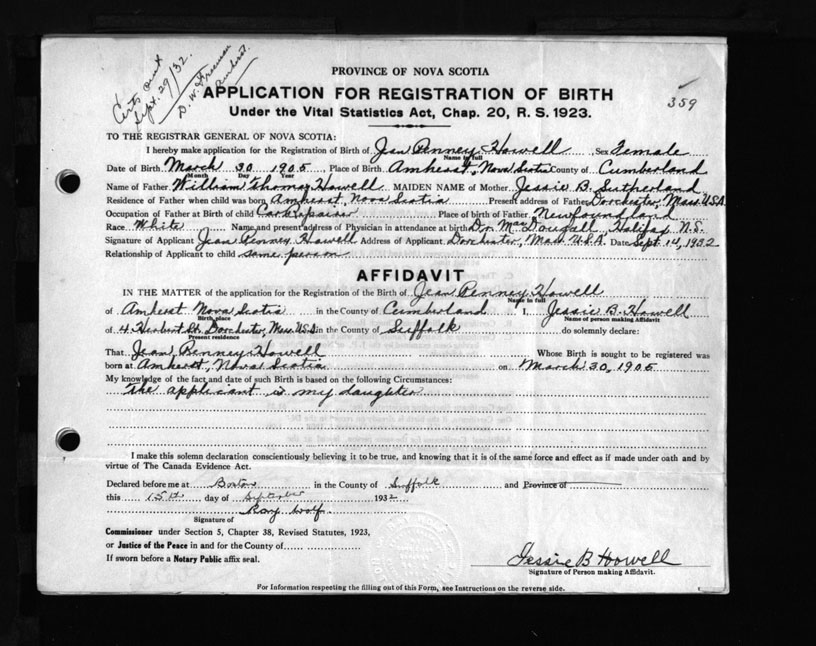 Certs sent
Sept. 29/32.
D. W. Freeman
Amherst.
359
PROVINCE OF NOVA SCOTIA
APPLICATION FOR REGISTRATION OF BIRTH
Under the Vital Statistics Act, Chap. 20, R. S. 1923.
TO THE REGISTRAR GENERAL OF NOVA SCOTIA:
I hereby make application for the Registration of Birth of Jean Penney Howell Sex Female
Name in full
Date of Birth March 30 1905, Place of Birth Amherst, Nova Scotia County of Cumberland
Month Day Year
Name of Father William Thomas Howell MAIDEN NAME of Mother Jessie B. Sutherland
Residence of Father when child was born Amherst, Nova Scotia Present address of Father Dorchester, Mass. U.S.A.
Occupation of Father at Birth of child Car Repairer Place of birth of Father Newfoundland
Race White Name and present address of Physician in attendance at birth Dr. Mac Dougall, Halifax, N.S.
Signature of Applicant Jean Penney Howell Address of Applicant Dorchester, Mass. U.S.A. Date Sept. 14, 1932
Relationship of Applicant to child same person
AFFIDAVIT
IN THE MATTER of the application for the Registration of the Birth of Jean Penney Howell
Name in full
of Amherst Nova Scotia in the County of Cumberland I, Jessie B. Howell
Birth place Name of person making Affidavit
of 4 Herbert St. Dorchester, Mass. U.S. in the County of Suffolk do solemnly declare:
Present residence
That Jean Penney Howell Whose Birth is sought to be registered was
born at Amherst, Nova Scotia on March 30, 1905
My knowledge of the fact and date of such Birth is based on the following Circumstances:
The applicant is my daughter
I make this solemn declaration conscientiously believing it to be true, and knowing that it is of the same force and effect as if made under oath and by
virtue of The Canada Evidence Act.
Declared before me at Boston in the County of Suffolk and Province of
this 15th day of September 1932
Ray Wolf
Signature of
Commissioner under Section 5, Chapter 38, Revised Statutes, 1923,
or Justice of the Peace in and for the County of
If sworn before a Notary Public affix seal.
Jessie B Howell
Signature of Person making Affidavit.
For Information respecting the filling out of this Form, see Instructions on the reverse side.